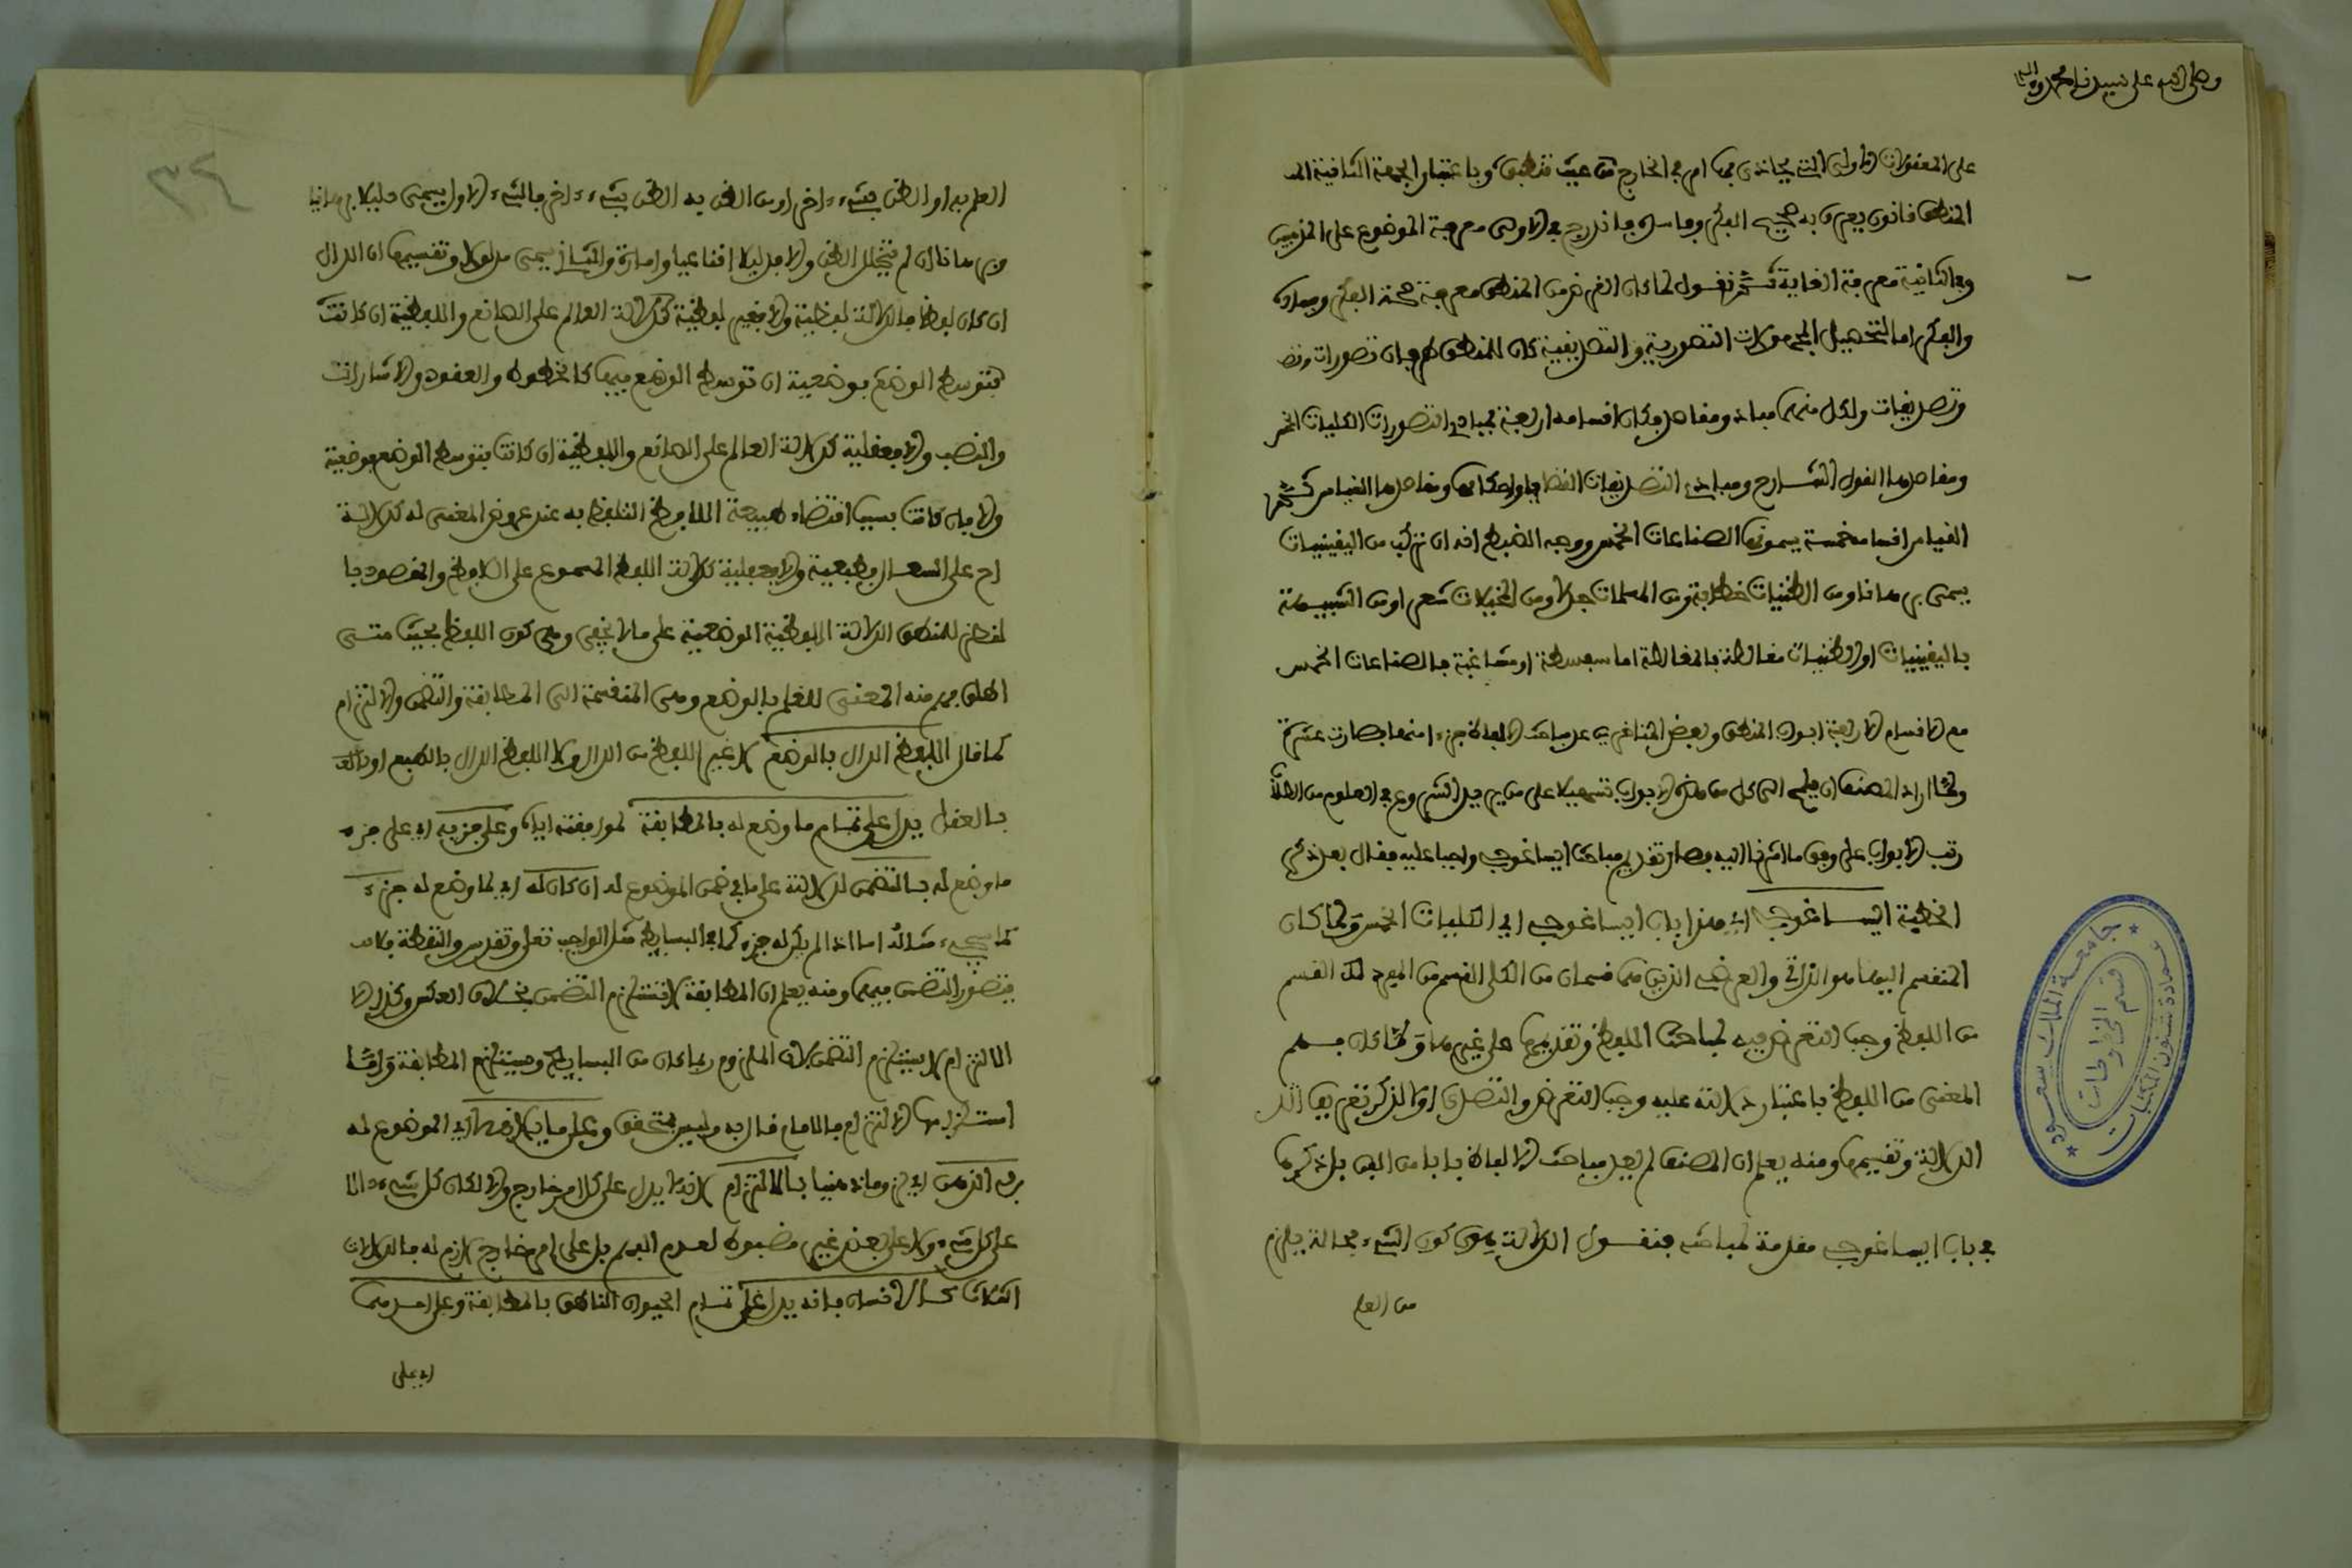 وصلى الله على سيدنا محمد وآله
على المعقولات الأولى التي يحاذى بها امر في الخارج من حيث تنطبق وباعتبار الجهة الثانية
المنطق قانون يعرف به صحيح الفكر وفاسده فاندرج في الأولى معرفة الموضوع على المذهبين
وفي الثانية معرفة الغاية ثم نقول لما كان الغرض من المنطق معرفة صحة الفكر وفساده
والفكر اما لتحصيل المجهولات التصورية او التصديقية كان للمنطق طرفان تصورات
وتصديقات ولكل منهما مباد ومقاصد فكان اقسامه اربعة فمبادي التصورات الكليات الخمس
ومقاصدها القول الشارح ومبادي التصديقات القضايا واحكامها ومقاصدها القياس ثم
القياس اقسامه خمسة يسمونها الصناعات الخمس ووجه الضبط انه ان تركب من اليقينيات
يسمى برهانا ومن الظنيات خطابة ومن المسلمات جدلا ومن المخيلات شعرا ومن الشبيهة
باليقينيات او الظنيات مغالطة فالمغالطة اما سفسطة او مشاغبة فالصناعات الخمس
مع الاقسام الاربعة ابواب المنطق وبعض المتاخرين عد مباحث الالفاظ جزءا منها فصارت عشرة
ولما اراد المصنف ان الى كل من هذه الابواب تسهيلا على من يريد الشروع في العلوم من الطلاب
رتب الابواب على وفق ما اشرنا اليه فصار تقديم مباحث ايساغوجي واجبا عليه فقال بعد ذكر
الخطبة ايساغوجي اي هذا باب ايساغوجي اي الكليات الخمس ولما كان
المنقسم اليهما هو الذاتي والعرضي الذين هما قسمان من الكلي القسم من المفرد القسم
من اللفظ وجب التعرض فيه لمباحث اللفظ وتقديمها على غيرها ولما كان فهم
المعنى من اللفظ باعتبار دلالته عليه وجب التعرض والتصدي اولا لذكر تعريف
الدلالة وتقسيمها ومنه يعلم ان المصنف لم يعد مباحث الالفاظ بابا من الفن بل ذكرها
في باب ايساغوجي مقدمة لمباحثه فنقول الدلالة هي كون الشيء بحالة يلزم
من العلم
٣٤
العلم به او الظن بشيء اخر او من الظن به الظن بشيء اخر فالشيء الاول يسمى دليلا برهانيا
وبرهانا ان لم يتخلل الظن والا فدليلا اقناعيا وامارة والثاني يسمى مدلولا وتقسيمها ان الدال
ان كان لفظا فالدلالة لفظية والا فغير لفظية كدلالة العالم على الصانع واللفظية ان كانت
بتوسط الوضع فوضعية ان توسط الوضع فيها كالخطوط والعقود والاشارات
والنصب والا فعقلية كدلالة العالم على الصانع واللفظية ان كانت بتوسط الوضع فوضعية
والا فان كانت بسبب اقتضاء طبيعة اللافظ التلفظ به عند عروض المعنى له كدلالة
اح على السعال فطبيعية والا فعقلية كدلالة اللفظ المسموع على اللافظ والمقصود
للمنطق الدلالة اللفظية الوضعية على ما لا يخفى وهي كون اللفظ بحيث متى
اطلق فهم منه المعنى للعلم بالوضع وهي المنقسمة الى المطابقة والتضمن والالتزام
كما قال اللفظ الدال بالوضع لا غير اللفظ من الدال ولا اللفظ الدال بالطبع
بالعقل يدل على تمام ما وضع له بالمطابقة لموافقته اياه وعلى جزئه اي على جزء
ما وضع له بالتضمن لدلالته على ما في ضمن الموضوع له ان كان له اي لما وضع له جزء
كما سيجيء مثاله اما اذا لم يكن له جزء كما في البسايط مثل الواجب تعالى وتقدس والنقطة فلا
يتصور التضمن فيهما ومنه يعلم ان المطابقة لا تستلزم التضمن بخلاف العكس وكذا
الالتزام لا يستلزم التضمن لان الملزوم ربما كان من البسايط ويستلزم المطابقة واما
استلزامها الالتزام فالامام قال به وليس بمتحقق وعلى ما يلازمه اي الموضوع له
في الذهن اي لزوما ذهنيا بالالتزام لانه لا يدل على كل امر خارج والا لكان كل شيء دالا
على كل شيء ولا على بعض غير مضبوط لعدم الفهم بل على امر خارج لازم له فالدلالات
الثلاث كالانسان فانه يدل على تمام الحيوان الناطق بالمطابقة وعلى احدهما
اي على
جامعة الملك سعود
عمادة شئون المكتبات
قسم المخطوطات